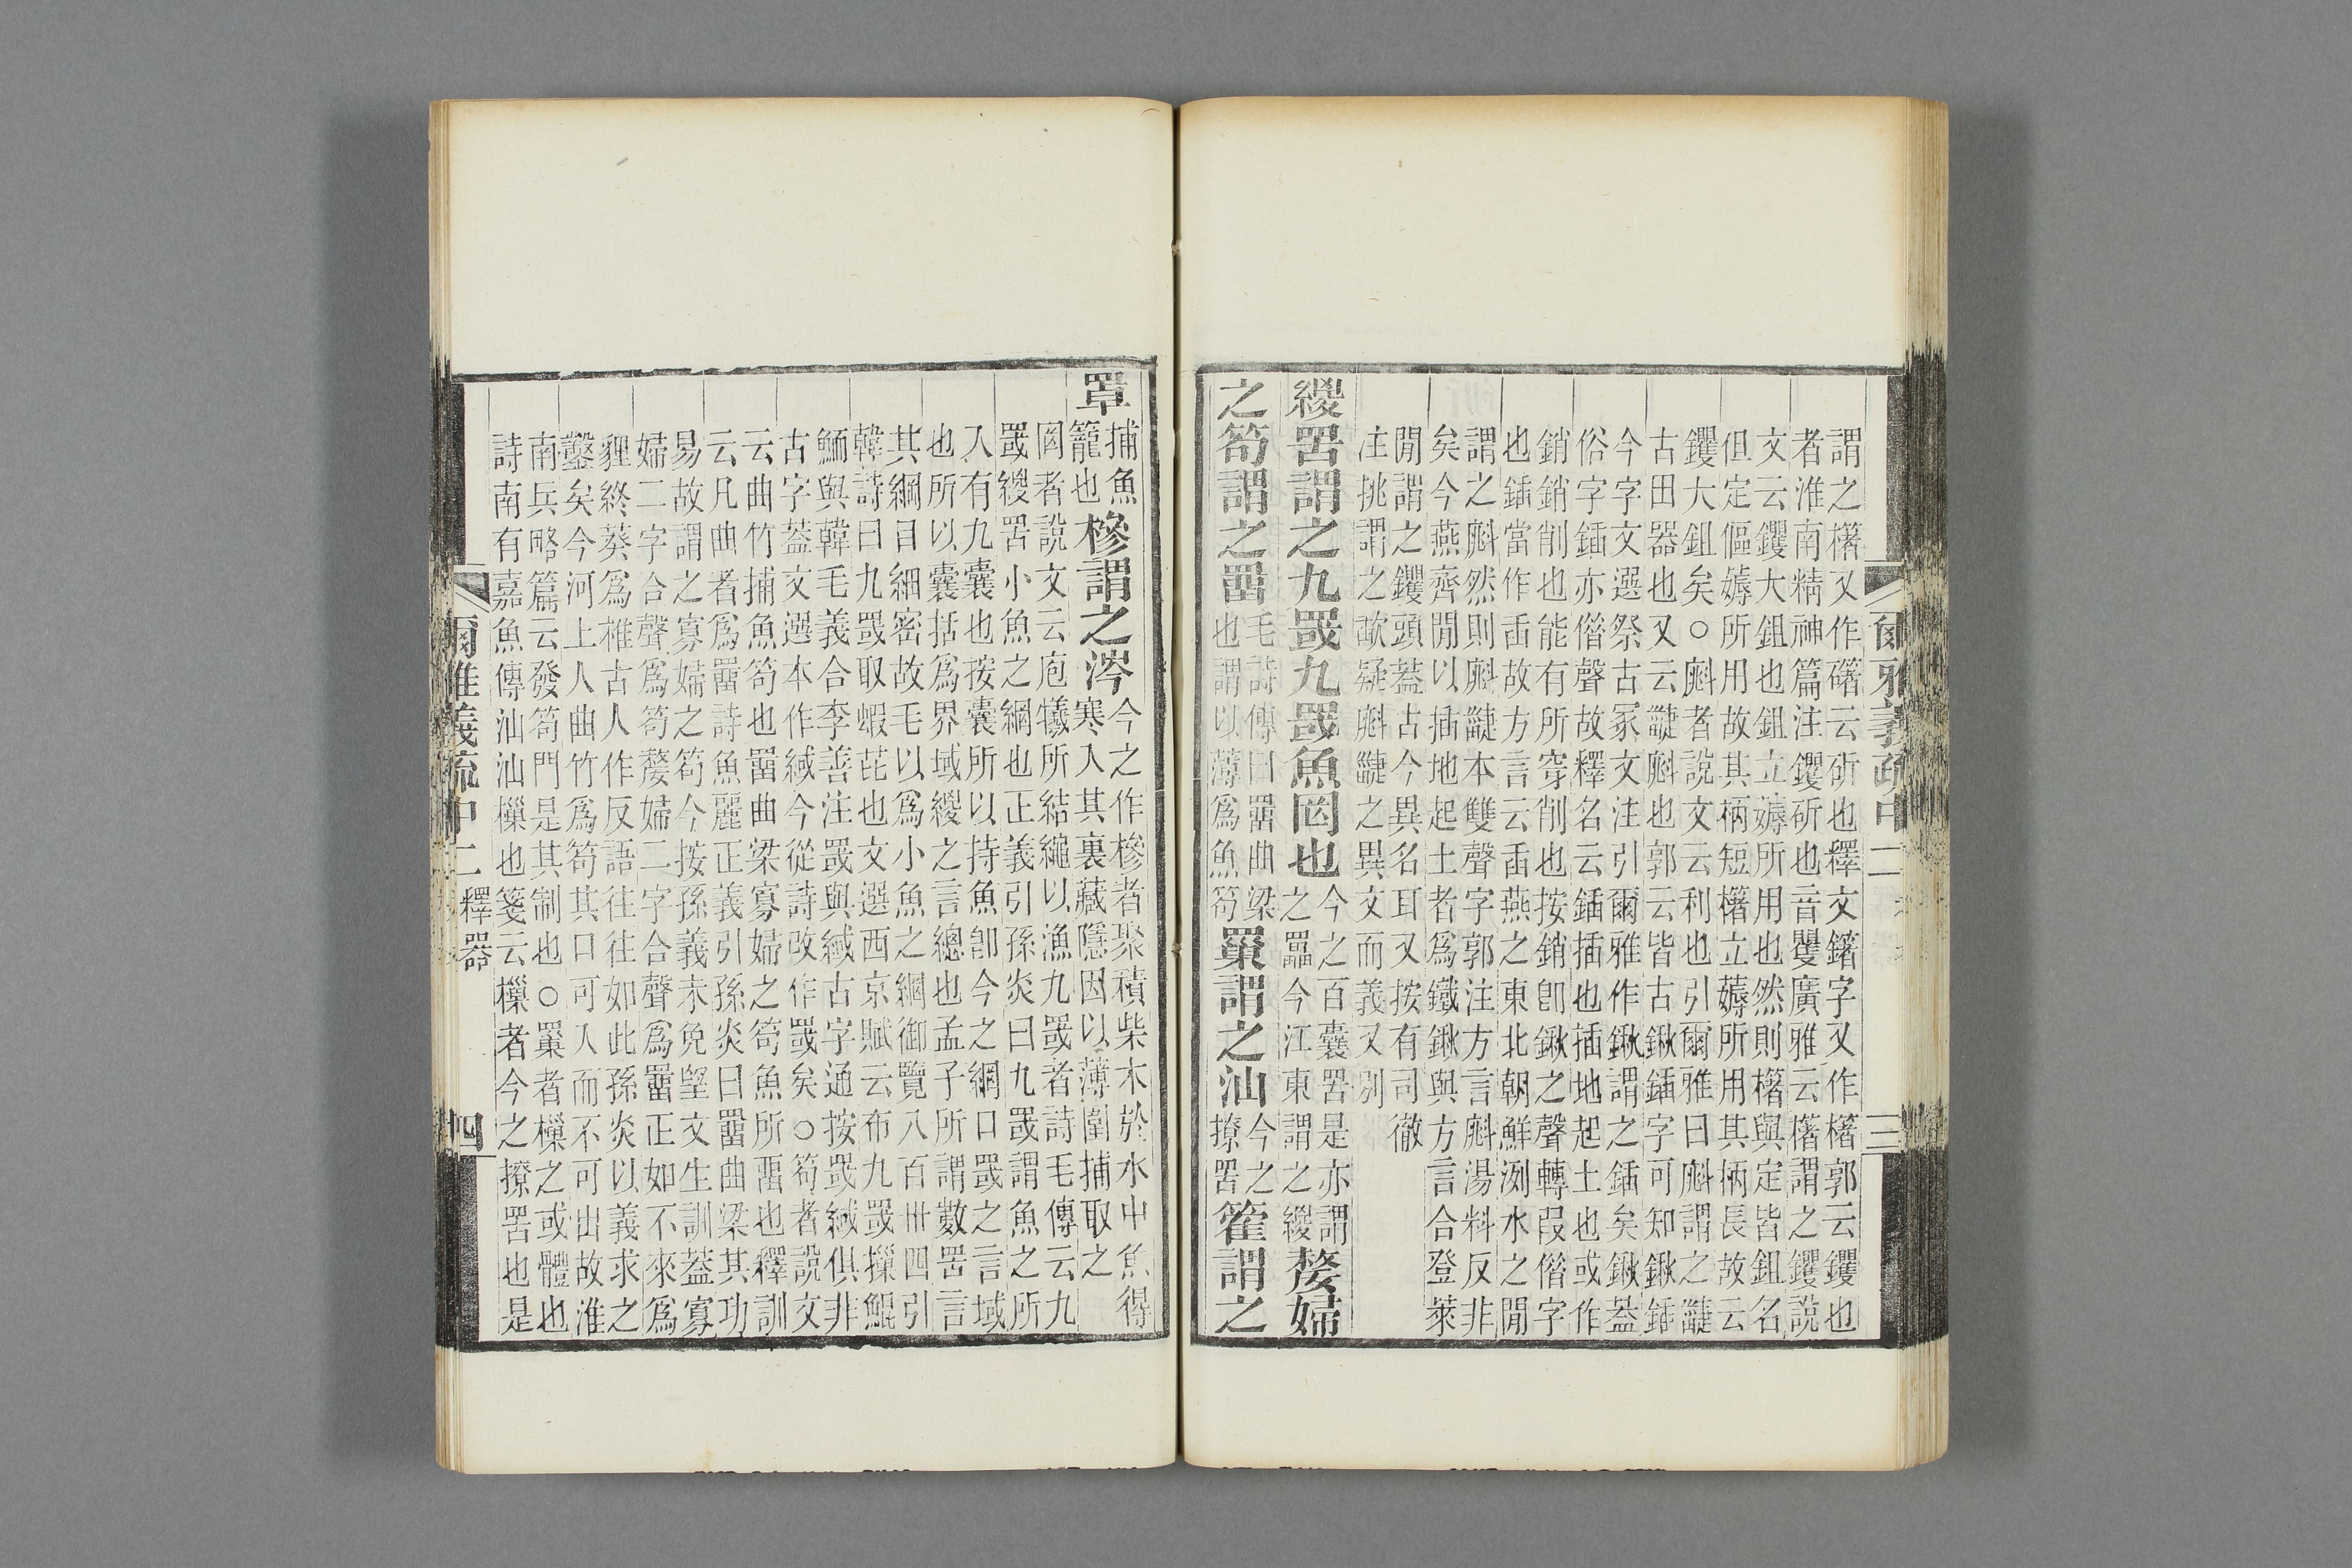 爾雅義疏中二
三
謂之櫡又作䃴云斫也釋文鐯字又作櫡郭云钁也
者淮南精神篇注钁斫也音矍廣雅云櫡謂之钁說
文云钁大鉏也鉏立薅所用也然則櫡與定皆鉏名
但定傴薅所用故其柄短櫡立薅所用其柄長故云
钁大鉏矣○㪺者說文云利也引爾雅曰㪺謂之疀
古田器也又云疀㪺也郭云皆古鍬鍤字可知鍬鍤
今字文選祭古冢文注引爾雅作鍬謂之鍤矣鍬蓋
俗字鍤亦偕聲故釋名云鍤插也插地起土也或作
銷銷削也能有所穿削也按銷卽鍬之聲轉叚偕字
也鍤當作臿故方言云臿燕之東北朝鮮洌水之閒
謂之㪺然則㪺疀本雙聲字郭注方言㪺湯料反非
矣今燕齊閒以插地起土者爲鐵鍬與方言合登萊
閒謂之钁頭蓋古今異名耳又按有司徹
注挑謂之歃疑㪺疀之異文而義又別
緵罟謂之九罭九罭魚罔也
今之百囊罟是亦謂
之䍡今江東謂之緵
嫠婦
之笱謂之罶
毛詩傳曰罶曲梁
也謂以薄爲魚笱
罺謂之汕
今之
撩罟
篧謂之
罩
捕魚
籠也
槮謂之涔
今之作槮者聚積柴木於水中魚得
寒入其裏藏隱因以薄圍捕取之
罔者說文云庖犧所結繩以漁九罭者詩毛傳云九
罭緵罟小魚之網也正義引孫炎曰九罭謂魚之所
入有九囊也按囊所以持魚卽今之網口罭之言域
也所以囊括爲界域緵之言總也孟子所謂數罟言
其綱目細密故毛以爲小魚之網御覽八百卅四引
韓詩曰九罭取蝦芘也文選西京賦云布九罭摷鯤
鮞與韓毛義合李善注罭與緎古字通按罭緎俱非
古字蓋文選本作緎今從詩改作罭矣○笱者說文
云曲竹捕魚笱也罶曲梁寡婦之笱魚所罶也釋訓
云凡曲者爲罶詩魚麗正義引孫炎曰罶曲梁其功
易故謂之寡婦之笱今按孫義未免望文生訓蓋寡
婦二字合聲爲笱嫠婦二字合聲爲罶正如不來爲
貍終葵爲椎古人作反語往往如此孫炎以義求之
鑿矣今河上人曲竹爲笱其口可入而不可出故淮
南兵略篇云發笱門是其制也○罺者樔之或體也
詩南有嘉魚傳汕汕樔也箋云樔者今之撩罟也是
爾雅義疏中二
釋器
四